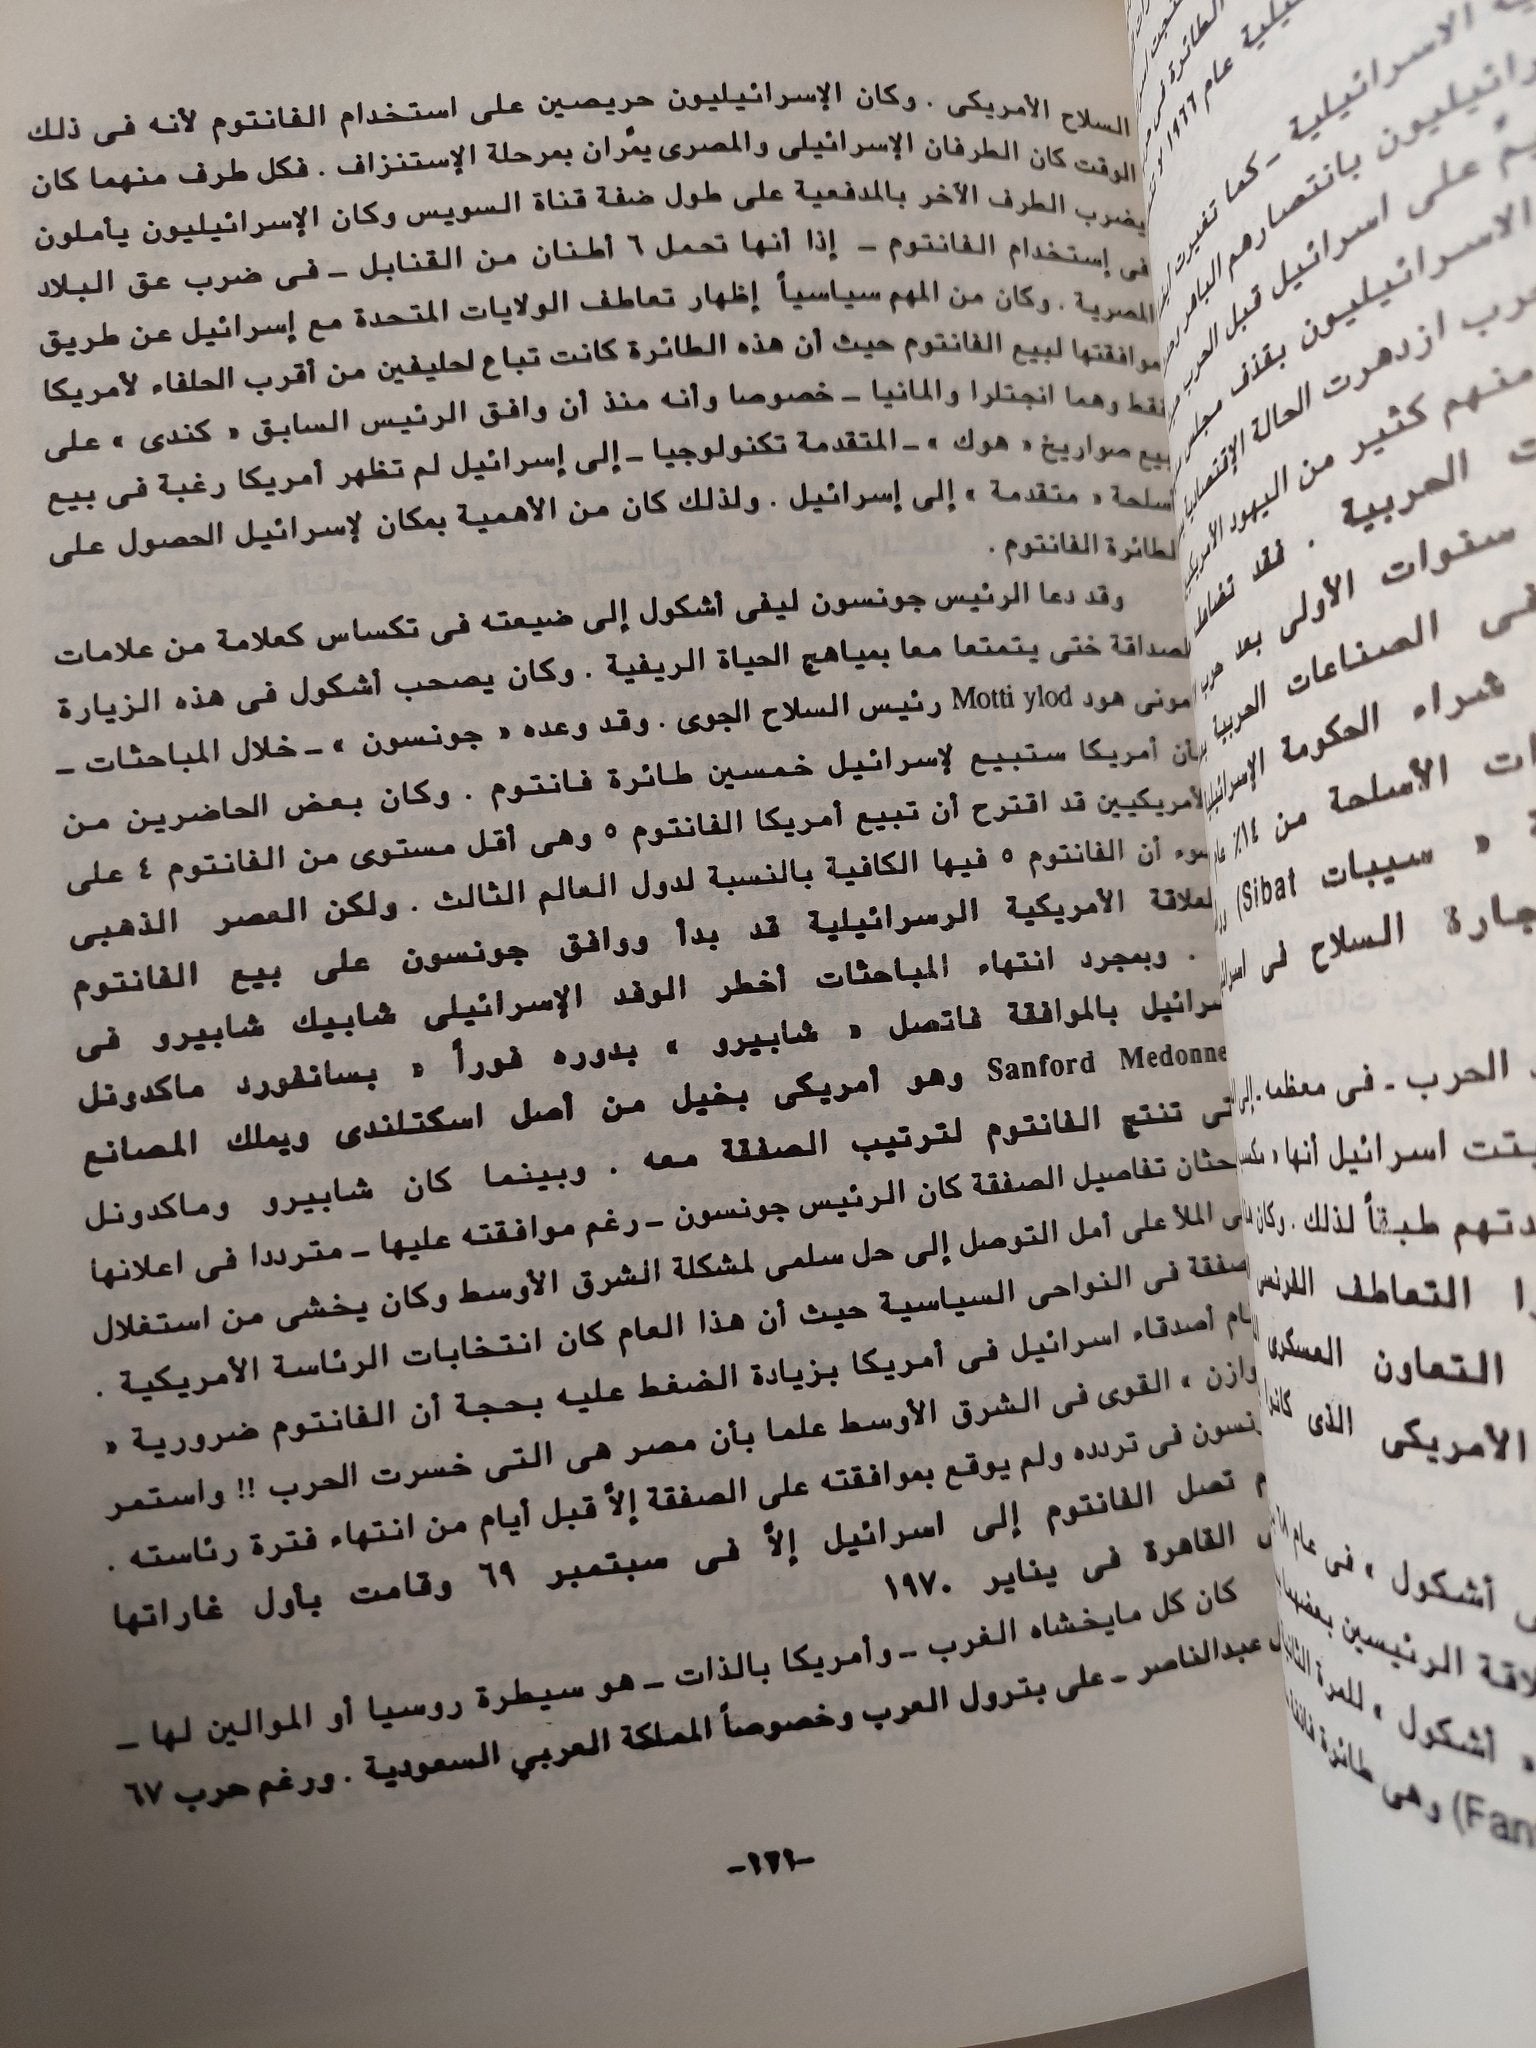 السلاح الأمريكى . وكان الإسرائيليون حريصين على استخدام الفانتوم لأنه فى ذلك
الوقت كان الطرفان الإسرائيلى والمصرى يمَّران بمرحلة الإستنزاف . فكل طرف منهما كان
يضرب الطرف الآخر بالمدفعية على طول ضفة قناة السويس وكان الإسرائيليون يأملون
فى إستخدام الفانتوم ــ إذا أنها تحمل ٦ أطنان من القنابل ــ فى ضرب عق البلاد
المصرية . وكان من المهم سياسياً إظهار تعاطف الولايات المتحدة مع إسرائيل عن طريق
موافقتها لبيع الفانتوم حيث أن هذه الطائرة كانت تباع لحليفين من أقرب الحلفاء لأمريكا
فقط وهما انجتلرا والمانيا ــ خصوصا وأنه منذ أن وافق الرئيس السابق « كندى » على
بيع صواريخ « هوك » ــ المتقدمة تكنولوجيا ــ إلى إسرائيل لم تظهر أمريكا رغبة فى بيع
أسلحة « متقدمة » إلى إسرائيل . ولذلك كان من الأهمية بمكان لإسرائيل الحصول على
لطائرة الفانتوم .
وقد دعا الرئيس جونسون ليفى أشكول إلى ضيعته فى تكساس كعلامة من علامات
لصداقة ختى يتمتعا معا بمياهج الحياة الريفية . وكان يصحب أشكول فى هذه الزيارة
مونى هود Motti ylod رئيس السلاح الجوى . وقد وعده « جونسون » ــ خلال المباحثات ــ
بأن أمريكا ستبيع لإسرائيل خمسين طائرة فانتوم . وكان بعض الحاضرين من
لأمريكيين قد اقترح أن تبيع أمريكا الفانتوم ٥ وهى أقل مستوى من الفانتوم ٤ على
ضوء أن الفانتوم ٥ فيها الكافية بالنسبة لدول العالم الثالث . ولكن العصر الذهبى
لعلاقة الأمريكية الرسرائيلية قد بدأ ووافق جونسون على بيع الفانتوم
. وبمجرد انتهاء المباحثات أخطر الوفد الإسرائيلى شابيك شابيرو فى
سرائيل بالموافقة فاتصل « شابيرو » بدوره فوراً « بسانفورد ماكدونل
Sanford Medonne وهو أمريكى بخيل من أصل اسكتلندى ويملك المصانع
تى تنتج الفانتوم لترتيب الصفقة معه . وبينما كان شابيرو وماكدونل
حثان تفاصيل الصفقة كان الرئيس جونسون ــ رغم موافقته عليها ــ مترددا فى اعلانها
الملأ على أمل التوصل إلى حل سلمى لمشكلة الشرق الأوسط وكان يخشى من استغلال
صفقة فى النواحى السياسية حيث أن هذا العام كان انتخابات الرئاسة الأمريكية .
ام أصدقاء اسرائيل فى أمريكا بزيادة الضغط عليه بحجة أن الفانتوم ضرورية «
وازن » القوى فى الشرق الأوسط علما بأن مصر هى التى خسرت الحرب !! واستمر
نسون فى تردده ولم يوقع بموافقته على الصفقة إلاَّ قبل أيام من انتهاء فترة رئاسته .
م تصل الفانتوم إلى اسرائيل إلاَّ فى سبتمبر ٦٩ وقامت بأول غاراتها
القاهرة فى يناير ١٩٧٠
كان كل مايخشاه الغرب ــ وأمريكا بالذات ــ هو سيطرة روسيا أو الموالين لها ــ
عبدالناصر ــ على بترول العرب وخصوصاً المملكة العربي السعودية . ورغم حرب ٦٧
-١٢١-
عام ١٩٦٦
الاسرائيلية ــ كما تغيرت
بانتصارهم الباهر
على اسرائيل قبل الحرب
الاسرائيليون بقذف مجلس
ازدهرت الحالة الإقتصادية
منهم كثير من اليهود الأمريكيين
الحربية . فقد تضاعف
سنوات الأولى بعد حرب
فى الصناعات الحربية
شراء الحكومة الإسرائيلية
الأسلحة من ١٤٪
« سيبات Sibat)
السلاح فى
الحرب ــ فى معظمه ــ
اسرائيل أنها
طبقاً لذلك . وكان
التعاطف الفرنسى
التعاون العسكرى
الأمريكى الذى
أشكول » فى عام
الرئيسين
« أشكول » للمرة
وهى طائرة